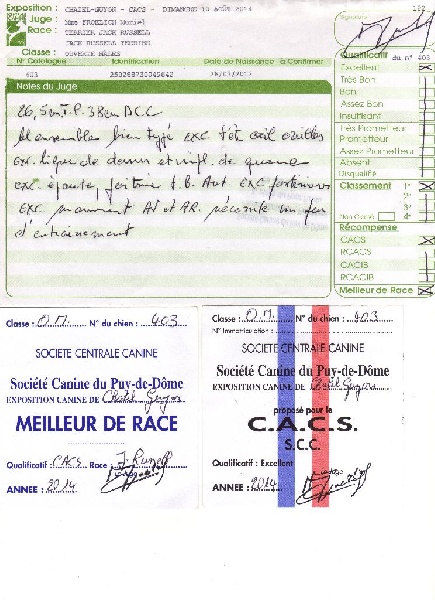 Exposition : CHATEL-GUYON - CACS - DIMANCHE 10 AOÛT 2014
162
Juge : Mme FROMLICH Muriel
Signature
Race : TERRIER JACK RUSSELL
JACK RUSSELL TERRIER
Classe : OUVERTE MÂLES
N° Catalogue Identification Date de Naissance à Confirmer
Qualificatif du n° 403
403 250268730045642
Excellent
Notes du Juge
Très Bon
Bon
Assez Bon
Insuffisant
Très Prometteur
Prometteur
Assez Prometteur
Absent
Disqualifié
26,5 cm T.P. 38 cm D.C.C
Bel ensemble bien typé exc tête oeil oreilles
exc. ligne de dessus et impl. de queue
exc. épaule, poitrine T.B. Ant. exc postérieurs
exc. mouvement AV et AR. nécessite un peu
d'entrainement
Classement 1°
2°
3°
Non Classé 4°
Récompense
CACS
RCACS
CACIB
RCACIB
Meilleur de Race
Classe : O.M. N° du chien : 403
SOCIETE CENTRALE CANINE
Société Canine du Puy-de-Dôme
EXPOSITION CANINE DE Chatel Guyon
MEILLEUR DE RACE
Qualificatif : CACS Race J. Russell
ANNÉE : 2014
Classe : O.M. N° du chien : 403
N° Immatriculation :
SOCIETE CENTRALE CANINE
Société Canine du Puy-de-Dôme
EXPOSITION CANINE DE Chatel Guyon
proposé pour le
C.A.C.S.
S.C.C.
Qualificatif : Excellent
ANNÉE : 2014